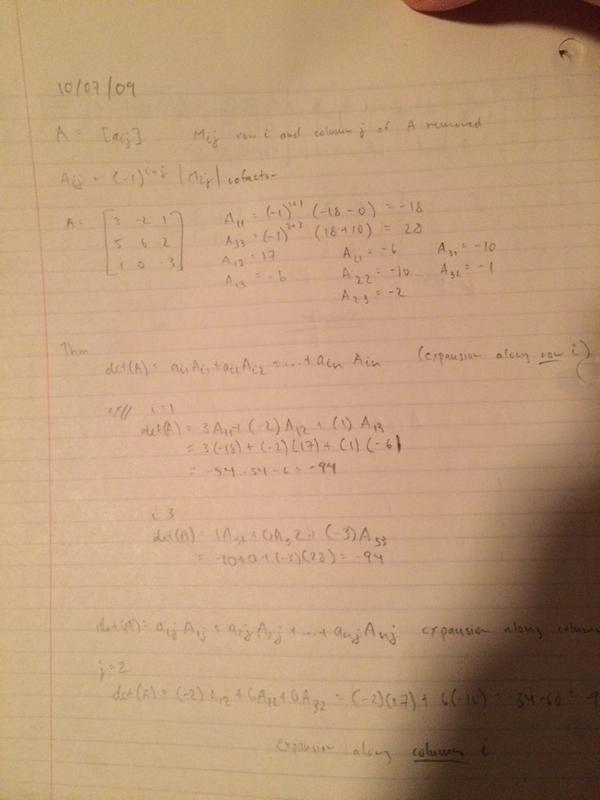 10/07/09
A = [aij] Mij row i and column j of A removed
Aij = (-1)^i+j |Mij| cofactor
A = [3 -2 1
5 6 2
1 0 -3]
A11 = (-1)^1+1 (-18 - 0) = -18
A33 = (-1)^3+3 (18+10) = 28
A12 = 17 A21 = -6 A31 = -10
A13 = -6 A22 = -10 A32 = -1
A23 = -2
Thm
det(A) = ai1 Ai1 + ai2 Ai2 + ... + ain Ain (expansion along row i)
i=1
det(A) = 3A11 + (-2)A12 + (1) A13
= 3(-18) + (-2)(17) + (1)(-6)
= -54 - 34 - 6 = -94
i 3
det(A) = 1A31 + 0A32 + (-3)A33
= -10+0+(-3)(28) = -94
det(A) = a1j A1j + a2j A2j + ... + anj Anj expansion along column
j=2
det(A) = (-2) A12 + 6A22 + 0A32 = (-2)(17) + 6(-10) = -34 - 60 = -9
expansion along column i